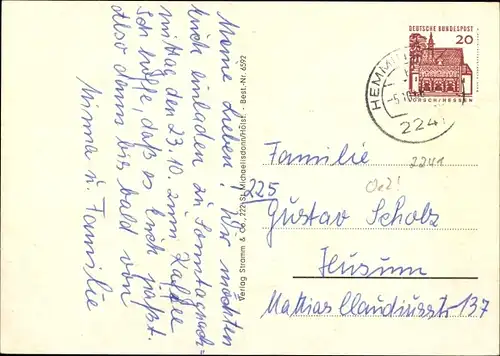 Meine Lieben! Wir möchten
Euch einladen zu Sonntagnach=
mittag den 23.10. zum Kaffee
Ich hoffe, daß es Euch paßt.
Also dann bis bald von
Minna u. Familie
Verlag Stramm & Co. 2221 St. Michaelisdonn/Holst. - Best.-Nr. 6592
DEUTSCHE BUNDESPOST
20
LORSCH/HESSEN
2241
Familie
2241
225
Gustav Scholz
Husum
Mathias Claudiusstr 137